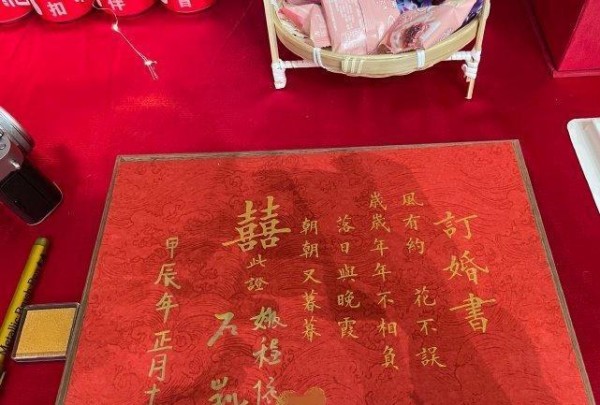 訂婚書
風有約 花不誤
歲歲年年不相負
落日與晚霞
朝朝又暮暮
囍
此證
石
甲辰年正月十
扣
Metallic